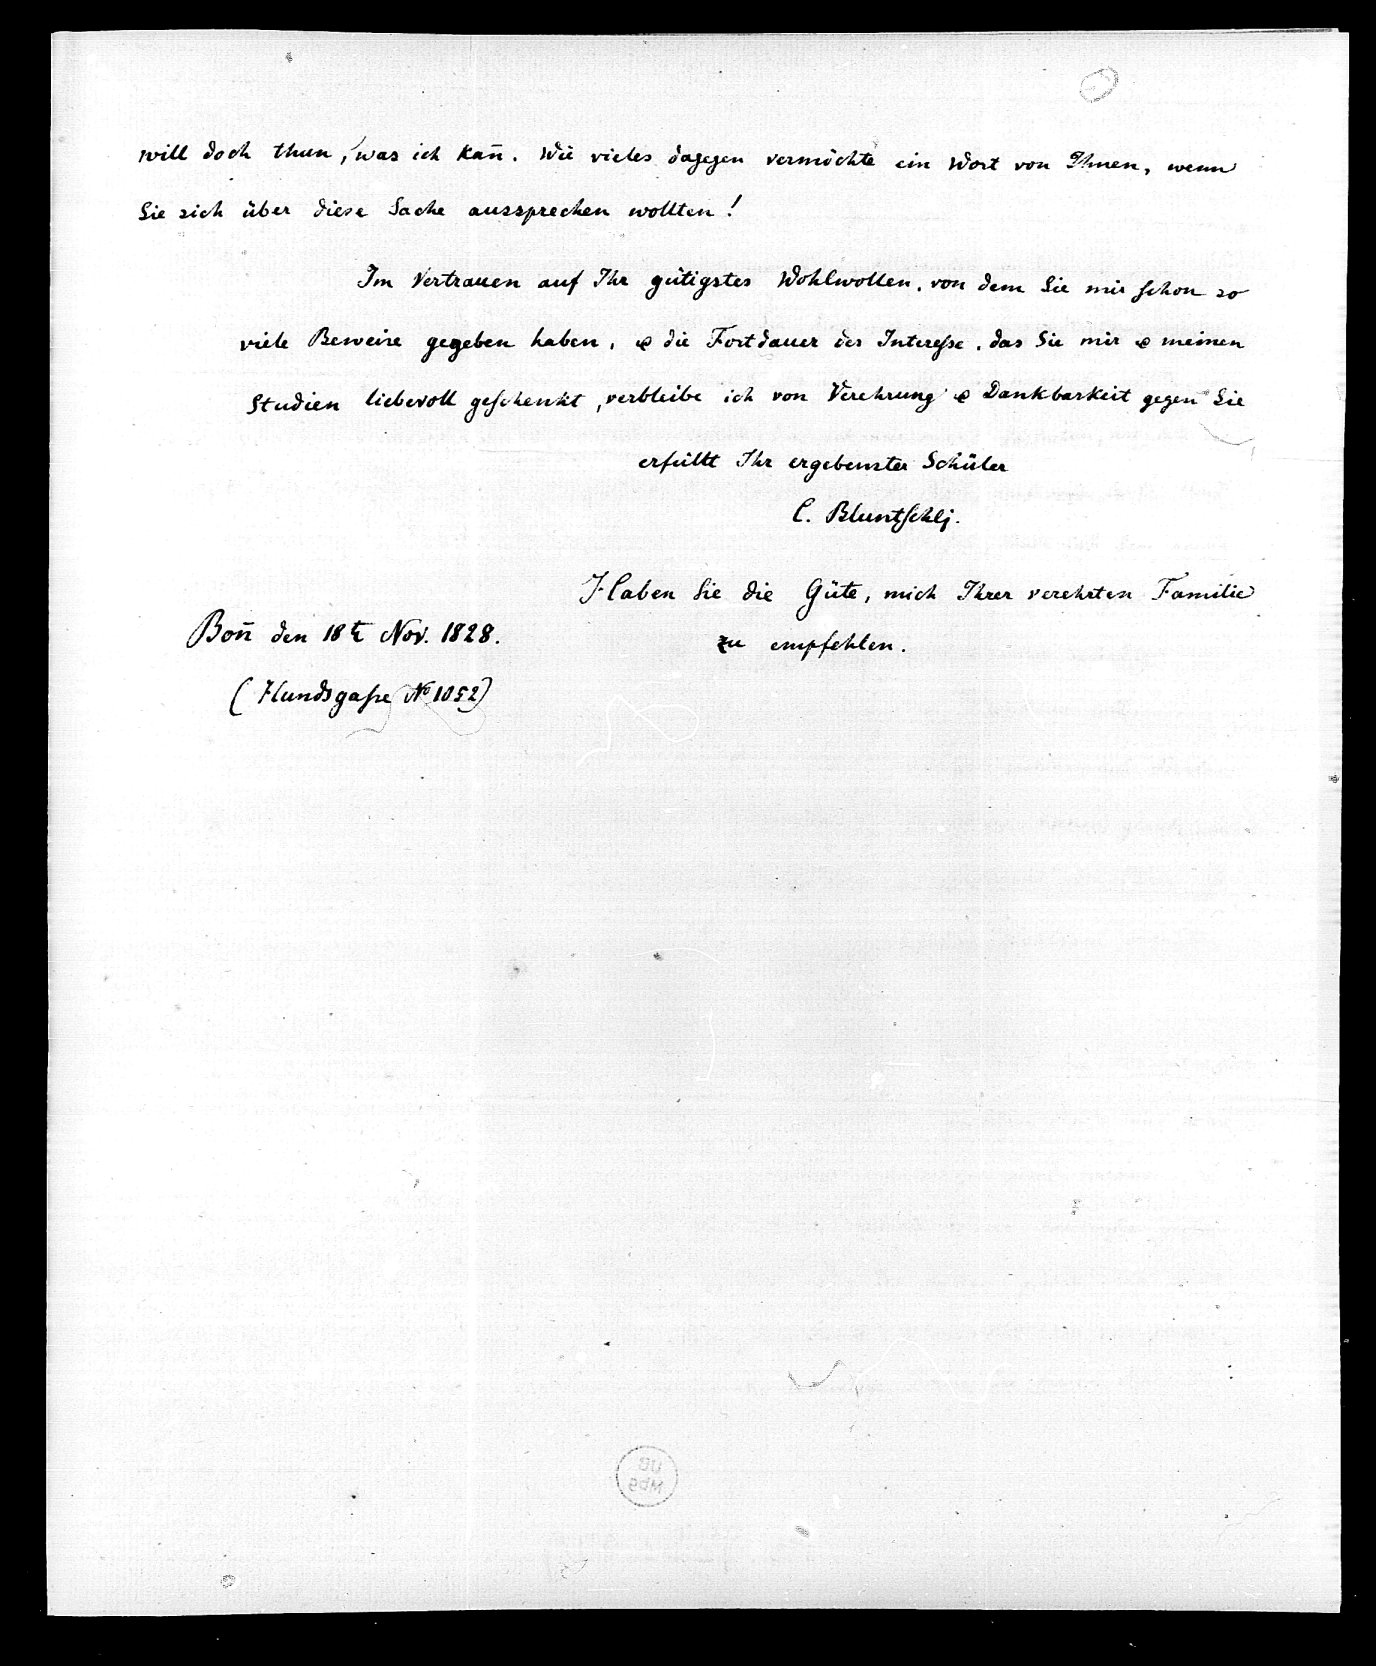 will doch thun, was ich kan̄. Wie vieles dagegen vermöchte ein Wort von Ihnen, wenn
Sie sich über diese Sache aussprechen wollten!
Im Vertrauen auf Ihr gütigstes Wohlwollen, von dem Sie mir schon so
viele Beweise gegeben haben, & die Fortdauer des Interesse, das Sie mir & meinen
Studien liebevoll geschenkt, verbleibe ich von Verehrung & Dankbarkeit gegen Sie
erfüllt Ihr ergebenster Schüler
C. Bluntschlj.
Haben Sie die Güte, mich Ihrer verehrten Familie
zu empfehlen.
Bon̄ den 18t Nov. 1828.
(Hundsgasse No 1052)